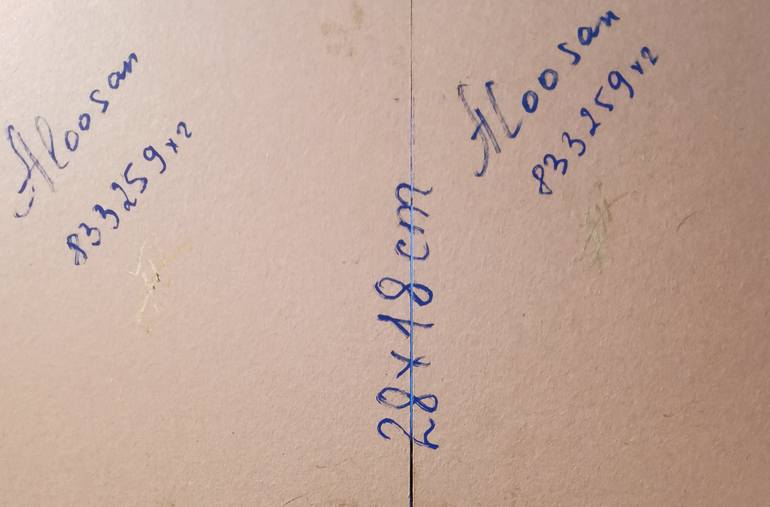 Aloosan
833259x2
28x18cm
Aloosan
833259x2